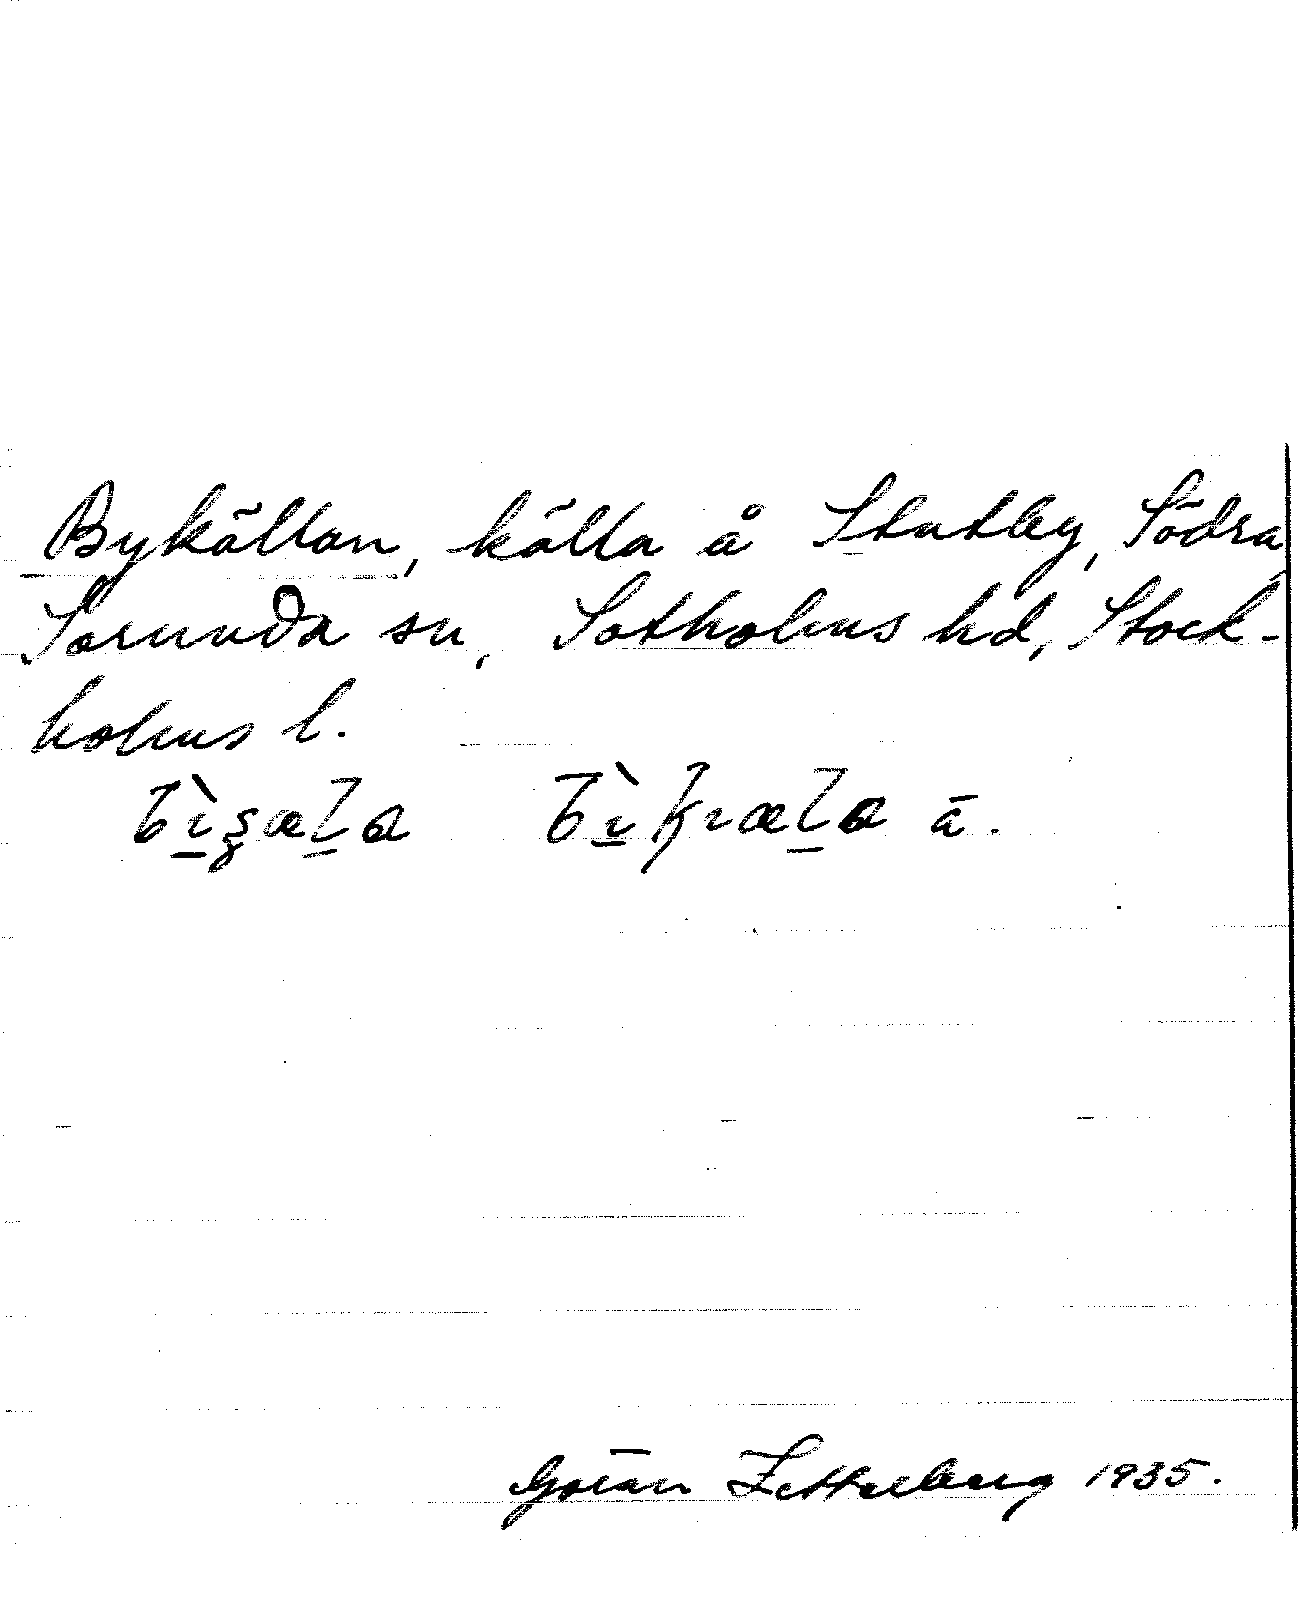 Bykällan, källa å Stutby, Södra
Sorunda sn, Sotholms hd, Stock-
holms l.
ā.
Göran Zetterberg 1935.